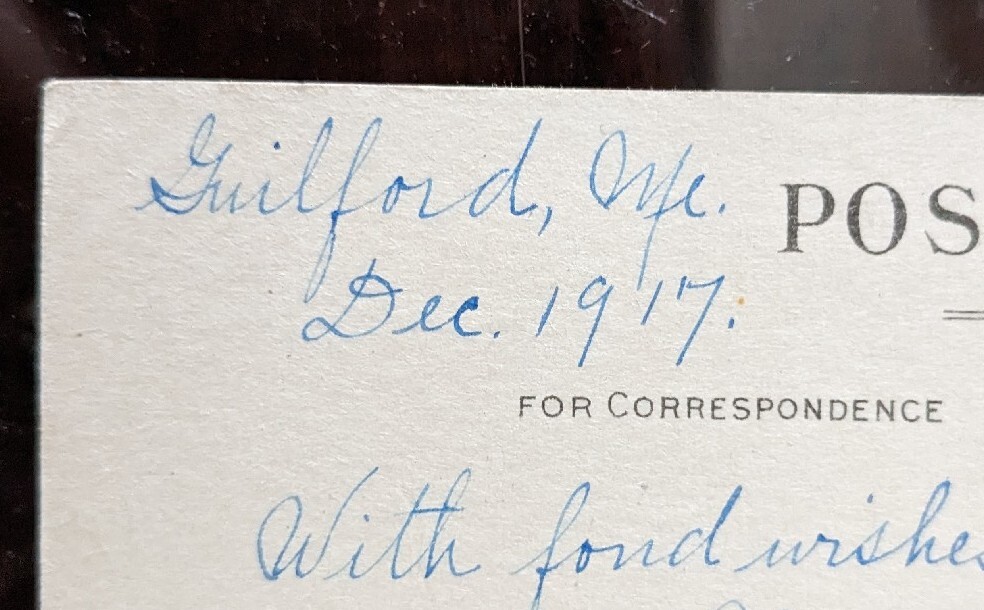 Guilford, Me.
POS
Dec. 1917.
FOR CORRESPONDENCE
With fond wishes